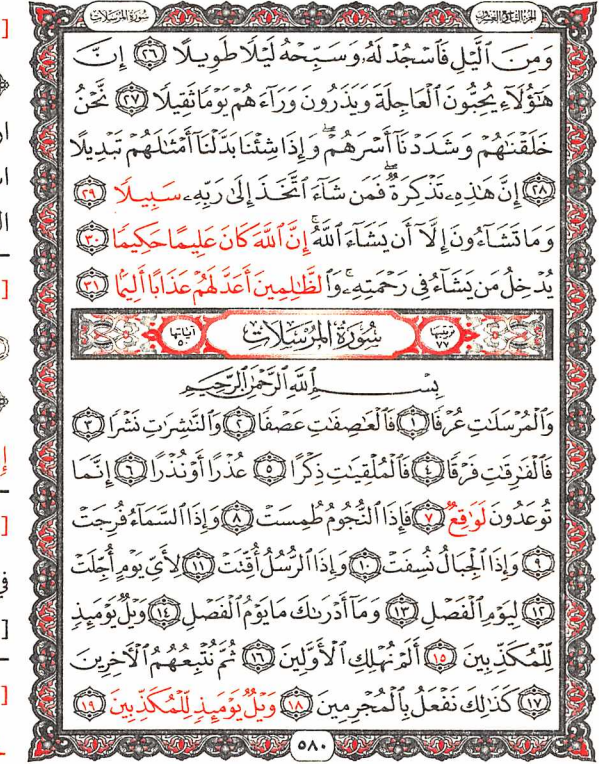 سُورَةُ المُرْسَلَات
الجُزْءُ التَّاسِعُ وَالعِشْرُون
وَمِنَ ٱلَّيۡلِ فَٱسۡجُدۡ لَهُۥ وَسَبِّحۡهُ لَيۡلًا طَوِيلًا ٢٦ إِنَّ
هَٰٓؤُلَآءِ يُحِبُّونَ ٱلۡعَاجِلَةَ وَيَذَرُونَ وَرَآءَهُمۡ يَوۡمًا ثَقِيلًا ٢٧ نَّحۡنُ
خَلَقۡنَٰهُمۡ وَشَدَدۡنَآ أَسۡرَهُمۡۖ وَإِذَا شِئۡنَا بَدَّلۡنَآ أَمۡثَٰلَهُمۡ تَبۡدِيلًا
٢٨ إِنَّ هَٰذِهِۦ تَذۡكِرَةٞۖ فَمَن شَآءَ ٱتَّخَذَ إِلَىٰ رَبِّهِۦ سَبِيلٗا ٢٩
وَمَا تَشَآءُونَ إِلَّآ أَن يَشَآءَ ٱللَّهُۚ إِنَّ ٱللَّهَ كَانَ عَلِيمًا حَكِيمٗا ٣٠
يُدۡخِلُ مَن يَشَآءُ فِي رَحۡمَتِهِۦۚ وَٱلظَّٰلِمِينَ أَعَدَّ لَهُمۡ عَذَابًا أَلِيمَۢا ٣١
ترتيبها ٧٧ سُورَةُ المُرْسَلَات آياتها ٥٠
بِسۡمِ ٱللَّهِ ٱلرَّحۡمَٰنِ ٱلرَّحِيمِ
وَٱلۡمُرۡسَلَٰتِ عُرۡفٗا ١ فَٱلۡعَٰصِفَٰتِ عَصۡفٗا ٢ وَٱلنَّٰشِرَٰتِ نَشۡرٗا ٣
فَٱلۡفَٰرِقَٰتِ فَرۡقٗا ٤ فَٱلۡمُلۡقِيَٰتِ ذِكۡرًا ٥ عُذۡرًا أَوۡ نُذۡرًا ٦ إِنَّمَا
تُوعَدُونَ لَوَٰقِعٞ ٧ فَإِذَا ٱلنُّجُومُ طُمِسَتۡ ٨ وَإِذَا ٱلسَّمَآءُ فُرِجَتۡ
٩ وَإِذَا ٱلۡجِبَالُ نُسِفَتۡ ١٠ وَإِذَا ٱلرُّسُلُ أُقِّتَتۡ ١١ لِأَيِّ يَوۡمٍ أُجِّلَتۡ
١٢ لِيَوۡمِ ٱلۡفَصۡلِ ١٣ وَمَآ أَدۡرَىٰكَ مَا يَوۡمُ ٱلۡفَصۡلِ ١٤ وَيۡلٞ يَوۡمَئِذٖ
لِّلۡمُكَذِّبِينَ ١٥ أَلَمۡ نُهۡلِكِ ٱلۡأَوَّلِينَ ١٦ ثُمَّ نُتۡبِعُهُمُ ٱلۡأٓخِرِينَ
١٧ كَذَٰلِكَ نَفۡعَلُ بِٱلۡمُجۡرِمِينَ ١٨ وَيۡلٞ يَوۡمَئِذٖ لِّلۡمُكَذِّبِينَ ١٩
٥٨٠